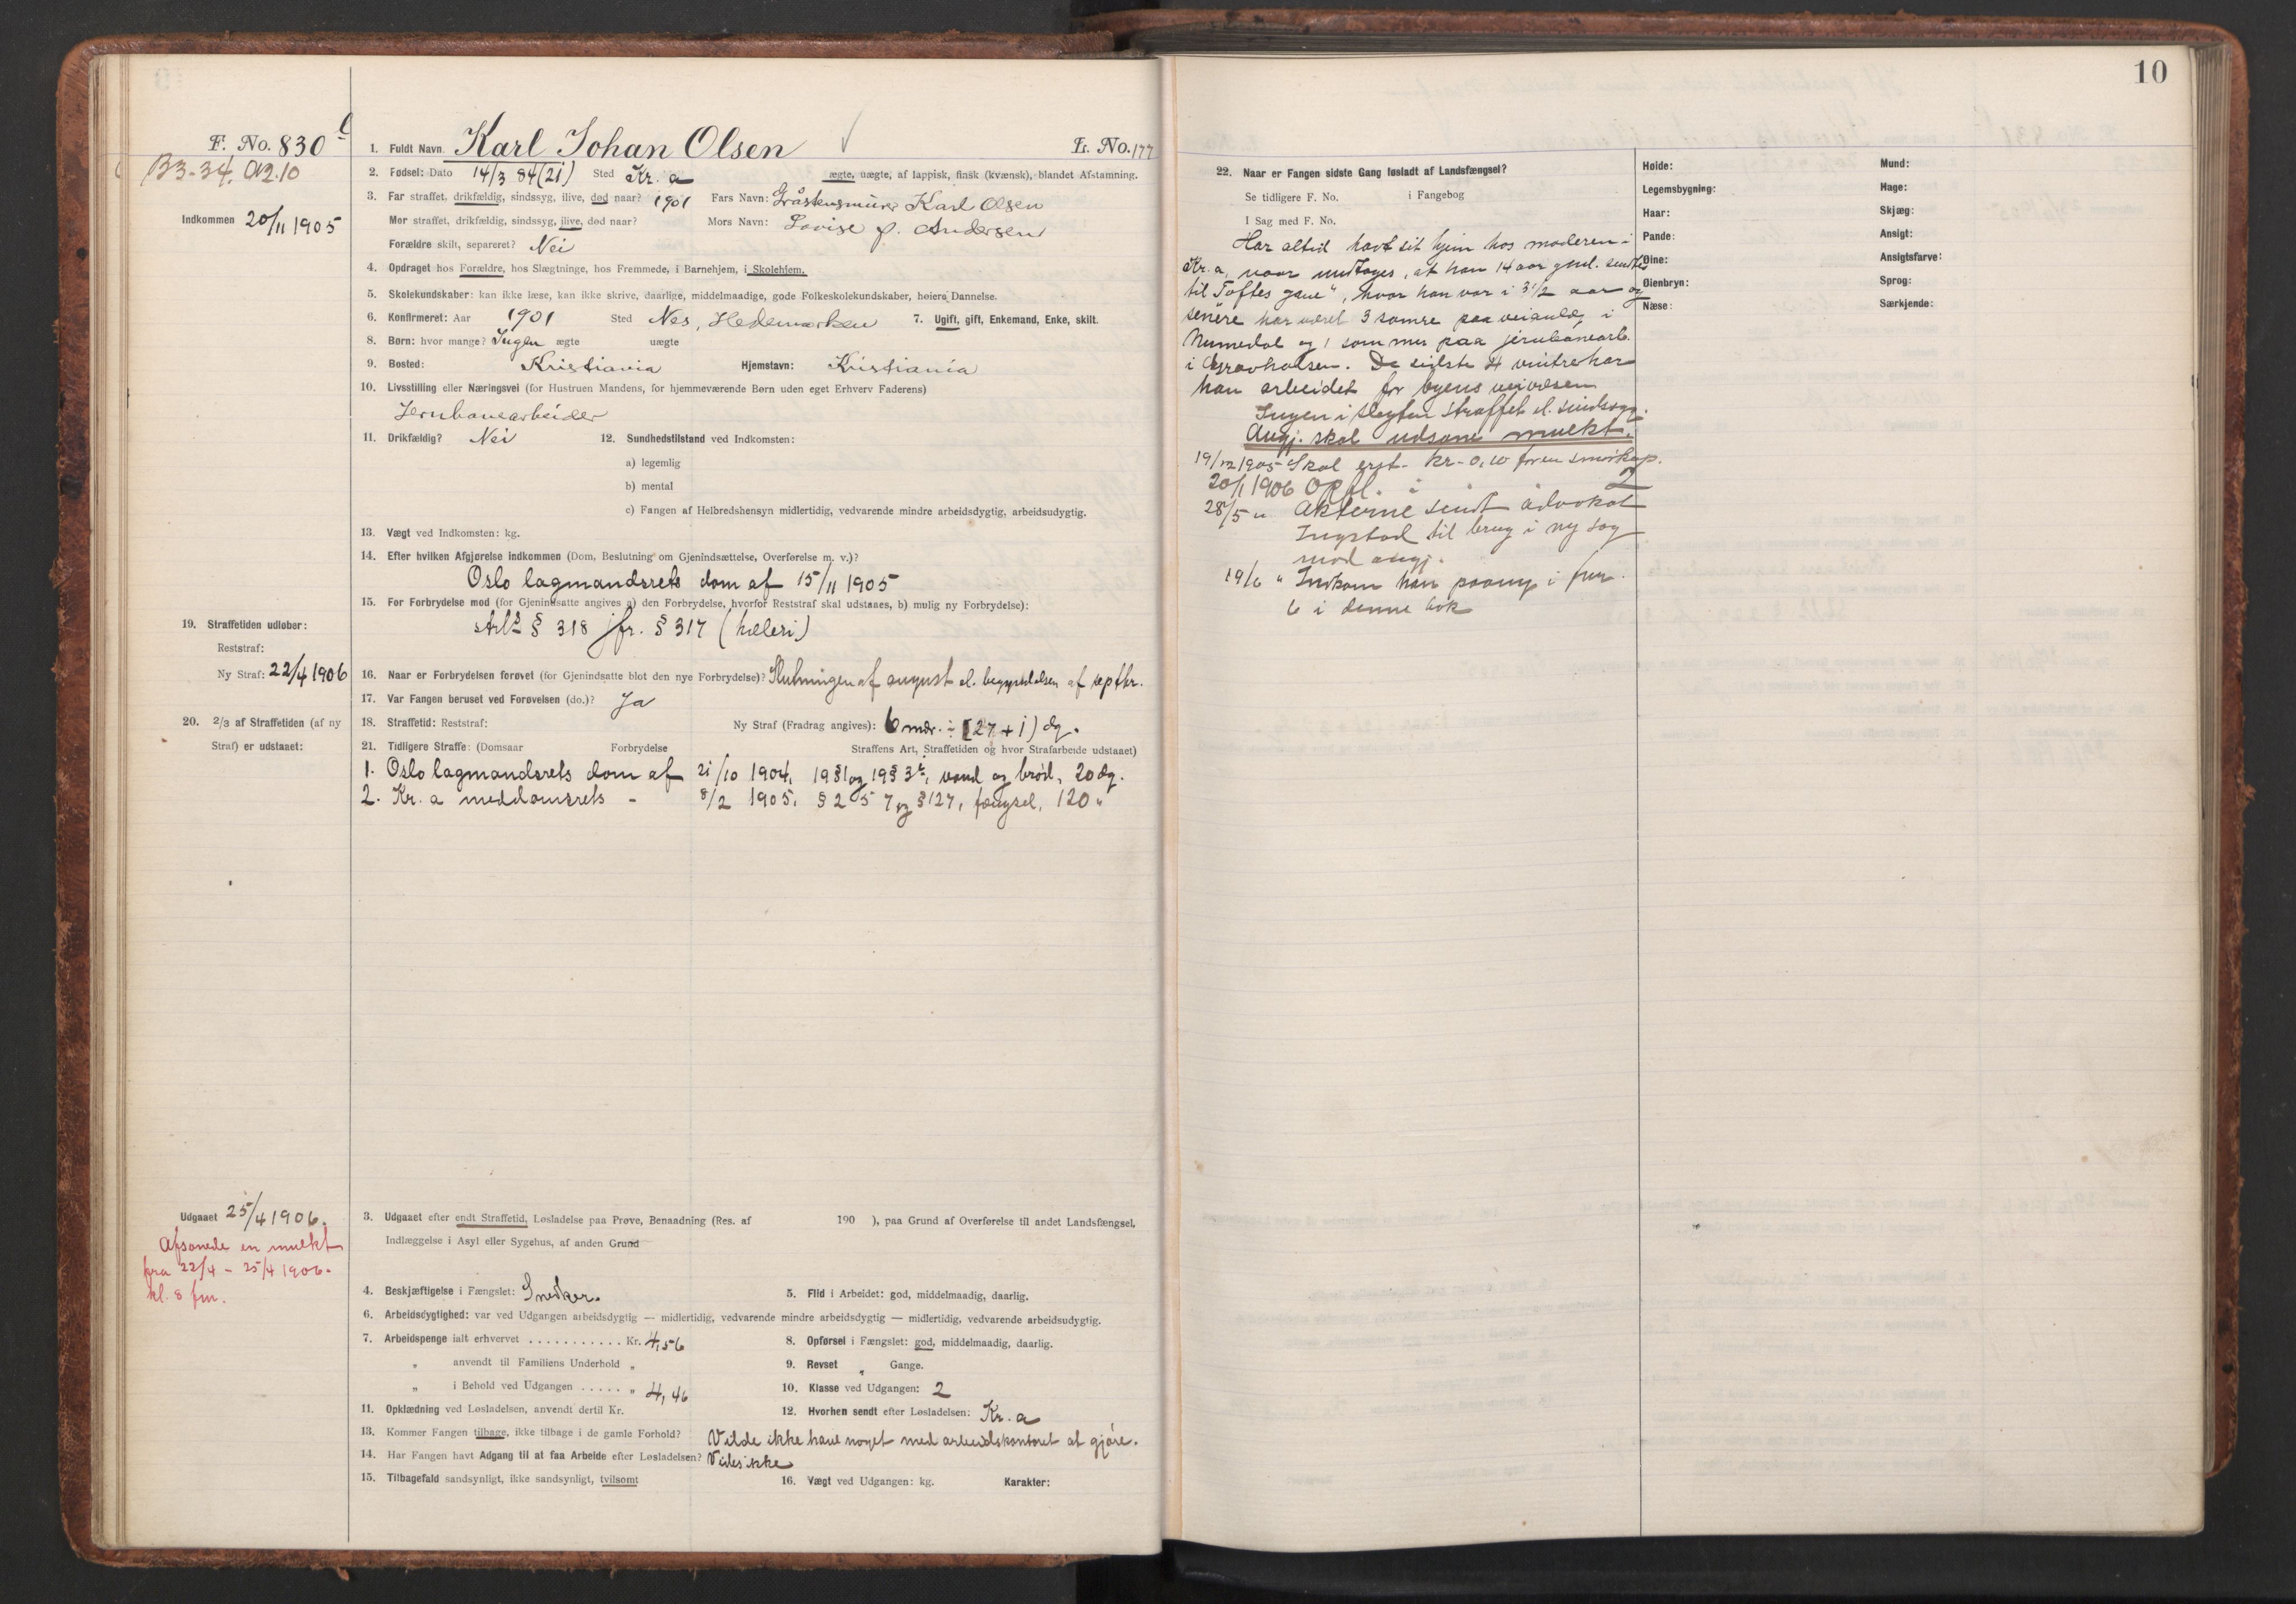 F. No. 830 b
B3-34. A2.10
Indkommen 20/11 1905
1. Fuldt Navn. Karl Johan Olsen L. No. 177
2. Fødsel: Dato 14/3 84 (21) Sted Kr. a ægte, uægte, af lappisk, finsk (kvænsk), blandet Afstamning.
3. Far straffet, drikfældig, sindssyg, ilive, død naar? 1901 Fars Navn: Gråstensmurer Karl Olsen
Mor straffet, drikfældig, sindssyg, ilive, død naar? Mors Navn: Lovise f. Andersen
Forældre skilt, separeret? Nei
4. Opdraget hos Forældre, hos Slægtninge, hos Fremmede, i Barnehjem, i Skolehjem.
5. Skolekundskaber: kan ikke læse, kan ikke skrive, daarlige, middelmaadige, gode Folkeskolekundskaber, høiere Dannelse.
6. Konfirmeret: Aar 1901 Sted Nes, Hedemarken 7. Ugift, gift, Enkemand, Enke, skilt.
8. Børn: hvor mange? Ingen ægte uægte
9. Bosted: Kristiania Hjemstavn: Kristiania
10. Livsstilling eller Næringsvei (for Hustruen Mandens, for hjemmeværende Børn uden eget Erhverv Faderens)
Jernbanearbeider
11. Drikfældig? Nei 12. Sundhedstilstand ved Indkomsten:
a) legemlig
b) mental
c) Fangen af Helbredshensyn midlertidig, vedvarende mindre arbeidsdygtig, arbeidsudygtig.
13. Vægt ved Indkomsten: kg.
14. Efter hvilken Afgjørelse indkommen (Dom, Beslutning om Gjenindsættelse, Overførelse m. v.)?
Oslo lagmandsrets dom af 15/11 1905
15. For Forbrydelse mod (for Gjenindsatte angives a) den Forbrydelse, hvorfor Reststraf skal udstaaes, b) mulig ny Forbrydelse):
strl § 318 jfr. § 317 (heleri)
19. Straffetiden udløber:
Reststraf:
Ny Straf: 22/4 1906
16. Naar er Forbrydelsen forøvet (for Gjenindsatte blot den nye Forbrydelse)? Slutningen af august el. begyndelsen af septbr.
17. Var Fangen beruset ved Forøvelsen (do.)? Ja
20. 2/3 af Straffetiden (af ny
Straf) er udstaaet:
18. Straffetid: Reststraf: Ny Straf (Fradrag angives): 6 mdr. ÷ (27 + 1) dg.
21. Tidligere Straffe: (Domsaar Forbrydelse Straffens Art, Straffetiden og hvor Strafarbeide udstaaet)
1. Oslo lagmandsrets dom af 21/10 1904, 19 § 1 og 19 § 3, vand og brød, 20 dg.
2. Kr. a meddomsrets - 8/2 1905, § 257 og § 127, fængsel, 120 "
Udgaaet 25/4 1906.
Afsonede en mulkt
fra 22/4 - 25/4 1906.
kl. 8 fm.
3. Udgaaet efter endt Straffetid, Løsladelse paa Prøve, Benaadning (Res. af 190 ), paa Grund af Overførelse til andet Landsfængsel,
Indlæggelse i Asyl eller Sygehus, af anden Grund
4. Beskjæftigelse i Fængslet: Snedker. 5. Flid i Arbeidet: god, middelmaadig, daarlig.
6. Arbeidsdygtighed: var ved Udgangen arbeidsdygtig — midlertidig, vedvarende mindre arbeidsdygtig — midlertidig, vedvarende arbeidsudygtig.
7. Arbeidspenge ialt erhvervet . . . . . . . . . . . Kr. 4,56 8. Opførsel i Fængslet: god, middelmaadig, daarlig.
" anvendt til Familiens Underhold " 9. Revset " Gange.
" i Behold ved Udgangen . . . . . " 4,46 10. Klasse ved Udgangen: 2
11. Opklædning ved Løsladelsen, anvendt dertil Kr. 12. Hvorhen sendt efter Løsladelsen: Kr. a
13. Kommer Fangen tilbage, ikke tilbage i de gamle Forhold? Vilde ikke have noget med arbeidskontoret at gjøre.
14. Har Fangen havt Adgang til at faa Arbeide efter Løsladelsen? Vides ikke
15. Tilbagefald sandsynligt, ikke sandsynligt, tvilsomt 16. Vægt ved Udgangen: kg. Karakter:
10
22. Naar er Fangen sidste Gang løsladt af Landsfængsel?
Se tidligere F. No. i Fangebog
I Sag med F. No.
Har altid havt sit hjem hos moderen i
Kr. a, naar undtages, at han 14 aar gml. sendtes
til "Toftes gave", hvor han var i 3 1/2 aar og
senere har været 3 somre paa veianlæg i
Numedal og 1 sommer paa jernbanearb.
i Gravhalsen. De sidste 4 vintre har
han arbeidet for byens veivæsen
Ingen i slegten straffet el. sindssyg.
Angj. skal udsone mulkt.
19/12 1905 Skal erst. kr. 0,10 for en smørkop.
20/1 1906 Opfl. i 2
28/5 " Akterne sendt advokat
Ingstad til brug i ny sag
mod angj.
19/6 " Indkom han paany i fnr.
6 i denne bok
Høide:
Legemsbygning:
Haar:
Pande:
Øine:
Øienbryn:
Næse:
Mund:
Hage:
Skjæg:
Ansigt:
Ansigtsfarve:
Sprog:
Særkjende: